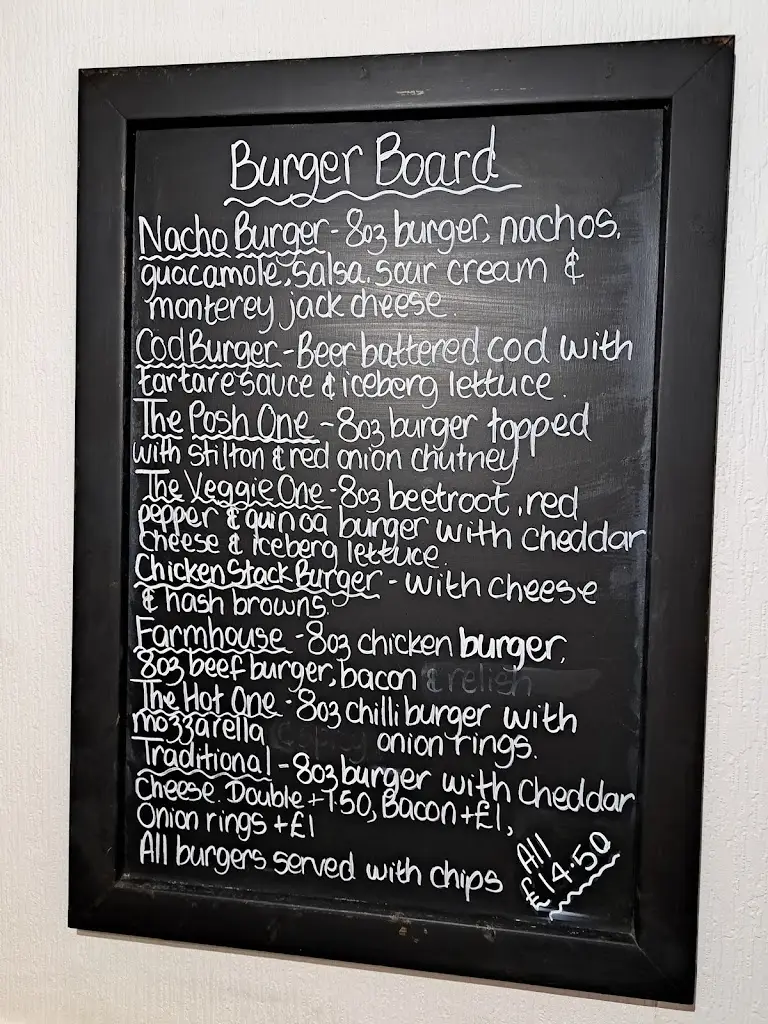 Burger Board
Nacho Burger - 8oz burger, nachos,
guacamole, salsa, sour cream &
monterey jack cheese.
Cod Burger - Beer battered cod with
tartare sauce & iceberg lettuce.
The Posh One - 8oz burger topped
with stilton & red onion chutney
The Veggie One - 8oz beetroot, red
pepper & quinoa burger with cheddar
cheese & iceberg lettuce.
Chicken Stack Burger - with cheese
& hash browns.
Farmhouse - 8oz chicken burger,
8oz beef burger, bacon & relish
The Hot One - 8oz chilli burger with
mozzarella onion rings.
Traditional - 8oz burger with cheddar
cheese. Double +1.50, Bacon +£1,
Onion rings +£1
All burgers served with chips
All
£14.50